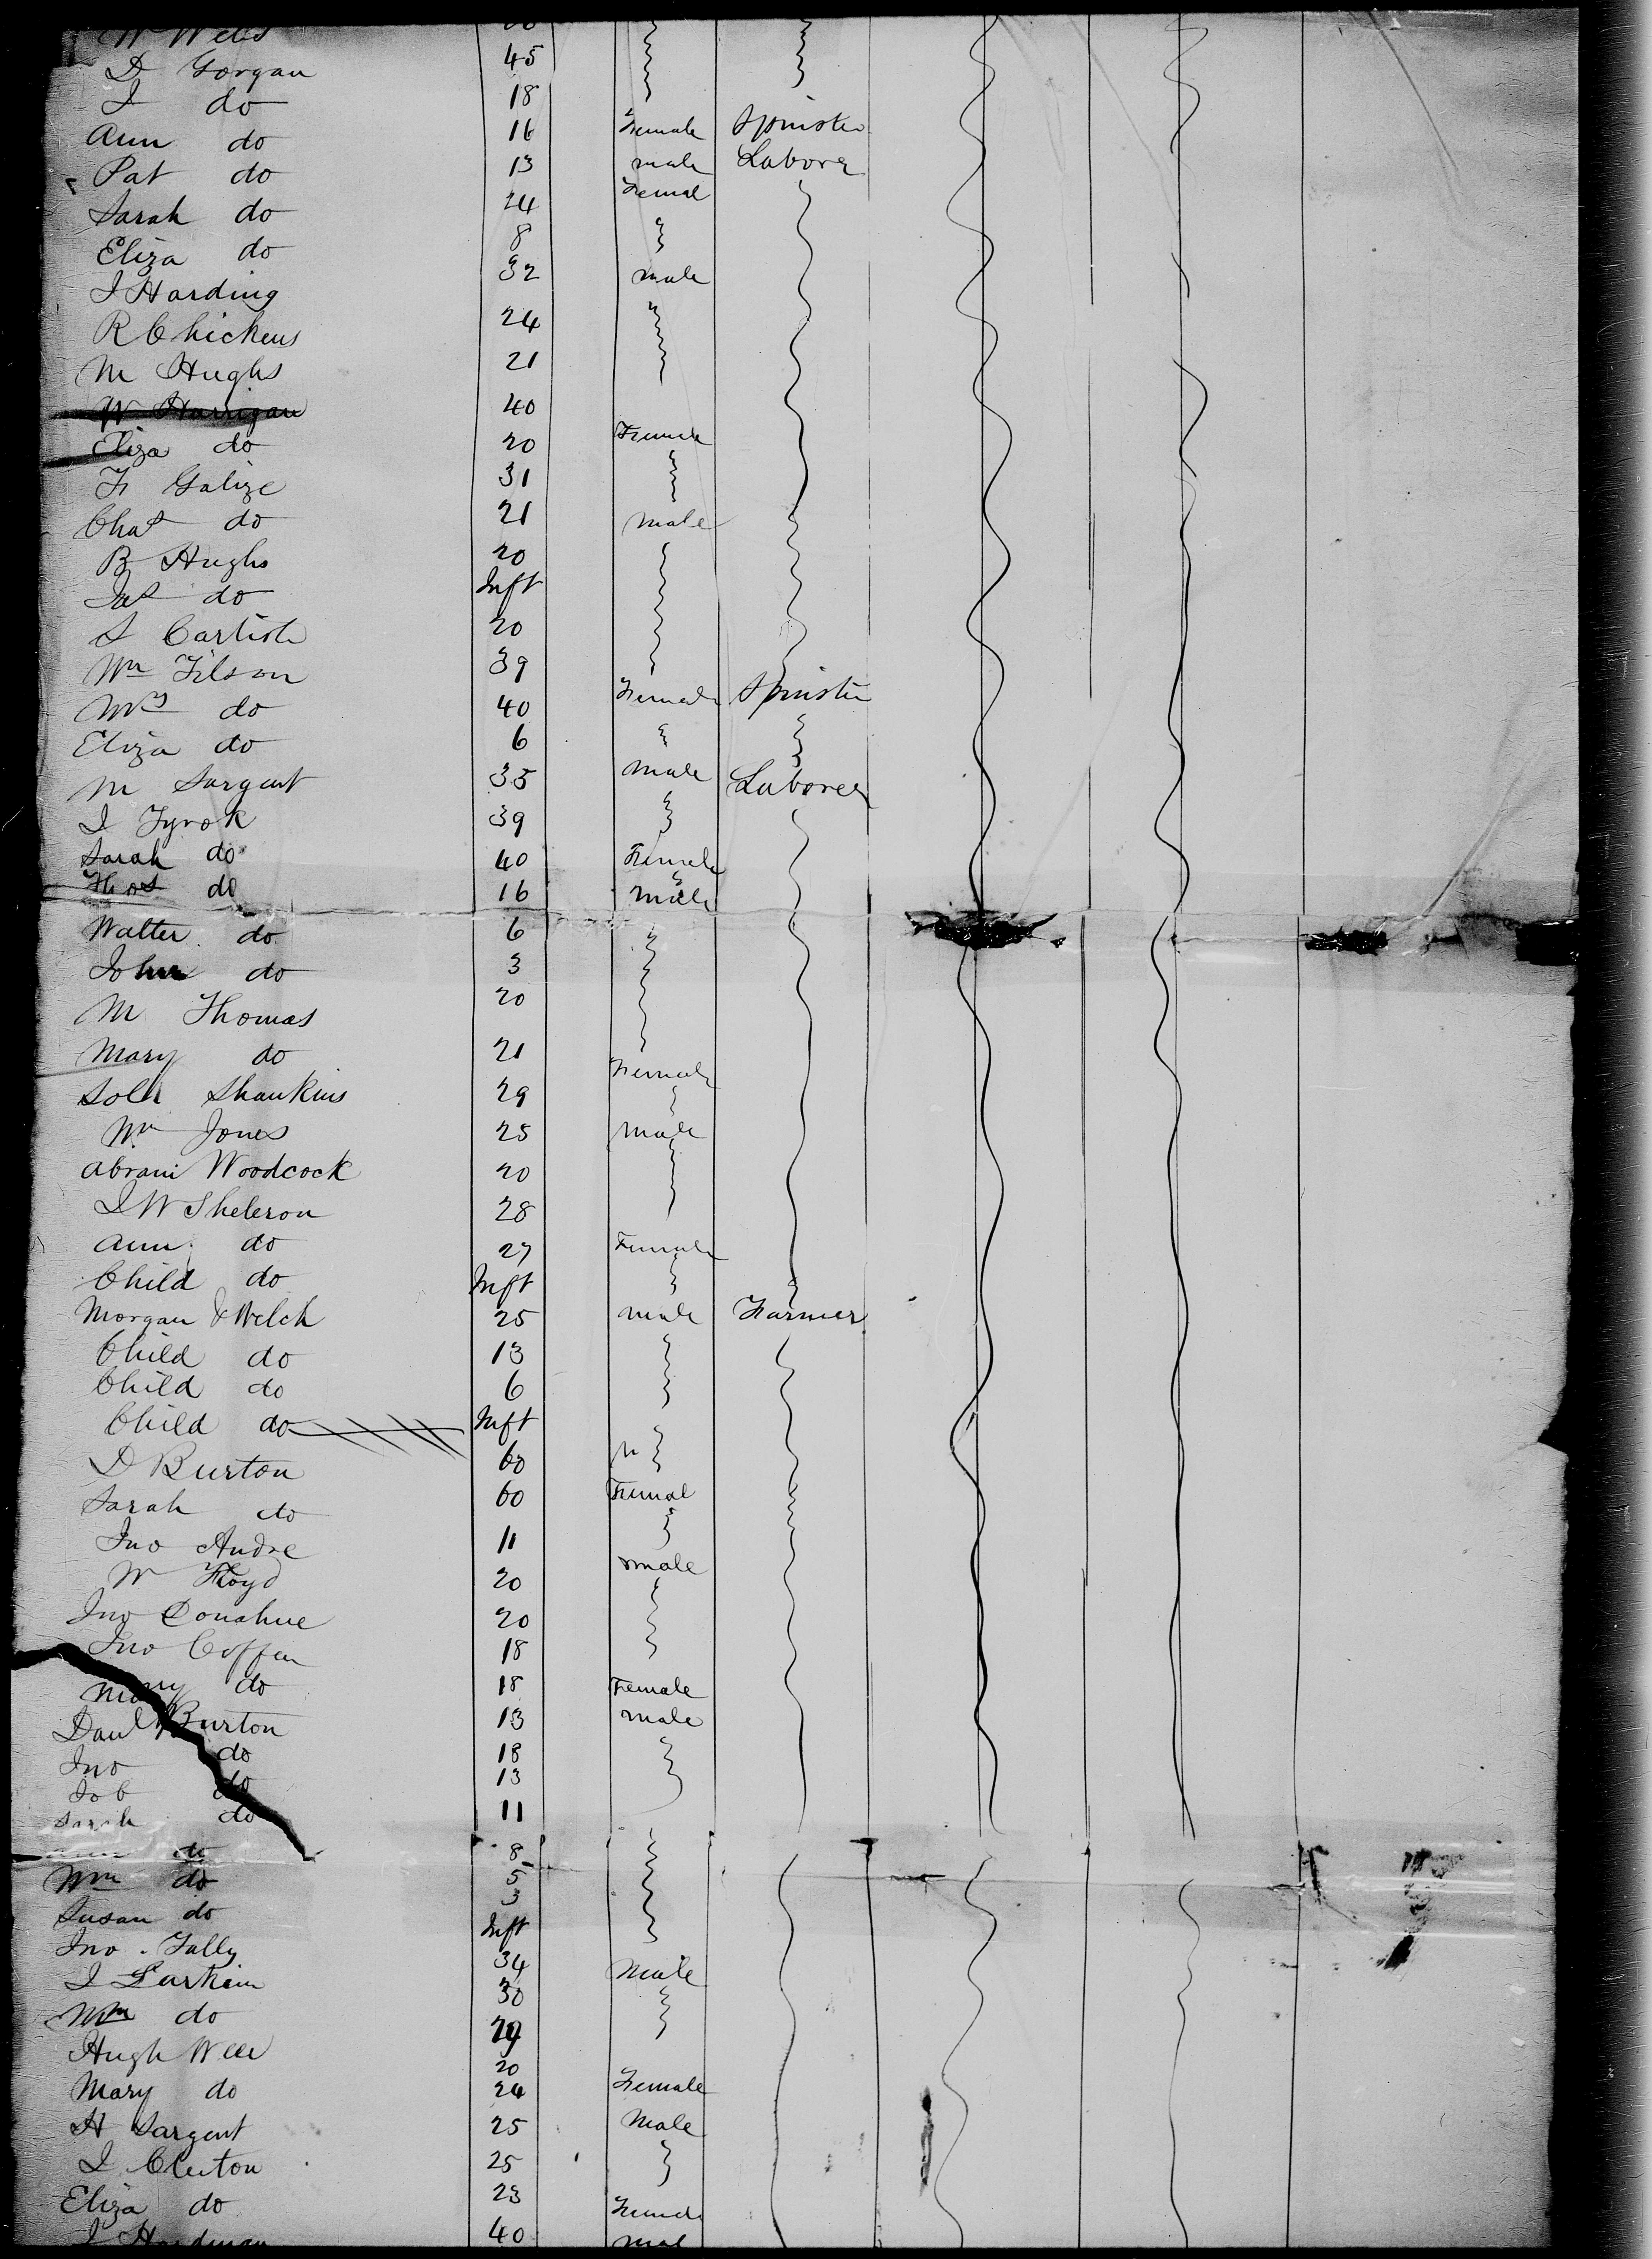 W Wells
D Gorgan 45
I do 18
Ann do 16 Female Spinster
Pat do 13 male Laborer
Sarah do 24 Femal
Eliza do 8
I Harding 32 male
R Chickens 24
M Hughs 21
W Harrigan 40
Eliza do 20 Female
Fr Galize 31
Chas do 21 male
B Hughs 20
Jas do Inft
S Carlisle 20
Wm Filson 39
Mrs do 40 Female Spinster
Eliza do 6
M Sargent 35 male Laborer
I Tyrok 39
Sarah do 40 Female
Thos do 16 male
Walter do 6
John do 3
M Thomas 20
Mary do 21 Female
Soln Shankins 29
Wm Jones 25 male
Abram Woodcock 20
I W Sheleron 28
Ann do 27 Female
Child do Inft
Morgan & Welch 25 male Farmer
Child do 13
Child do 6
Child do Inft
D Burton 60 m
Sarah do 60 Femal
Jno Andre 11
W Floyd 20 male
Jno Donahue 20
Jno Coffen 18
Mary do 18 Female
Danl Burton 13 male
Jno do 18
Job do 13
Sarah do 11
do 8
Wm do 5
Susan do 3
Jno Tally Inft
I Larkin 34 Male
Wm do 30
Hugh Weer 29
Mary do 20
24 Female
H Sargent 25 Male
I Cleuton 25
Eliza do 23 Female
I Hardman 40 Mal